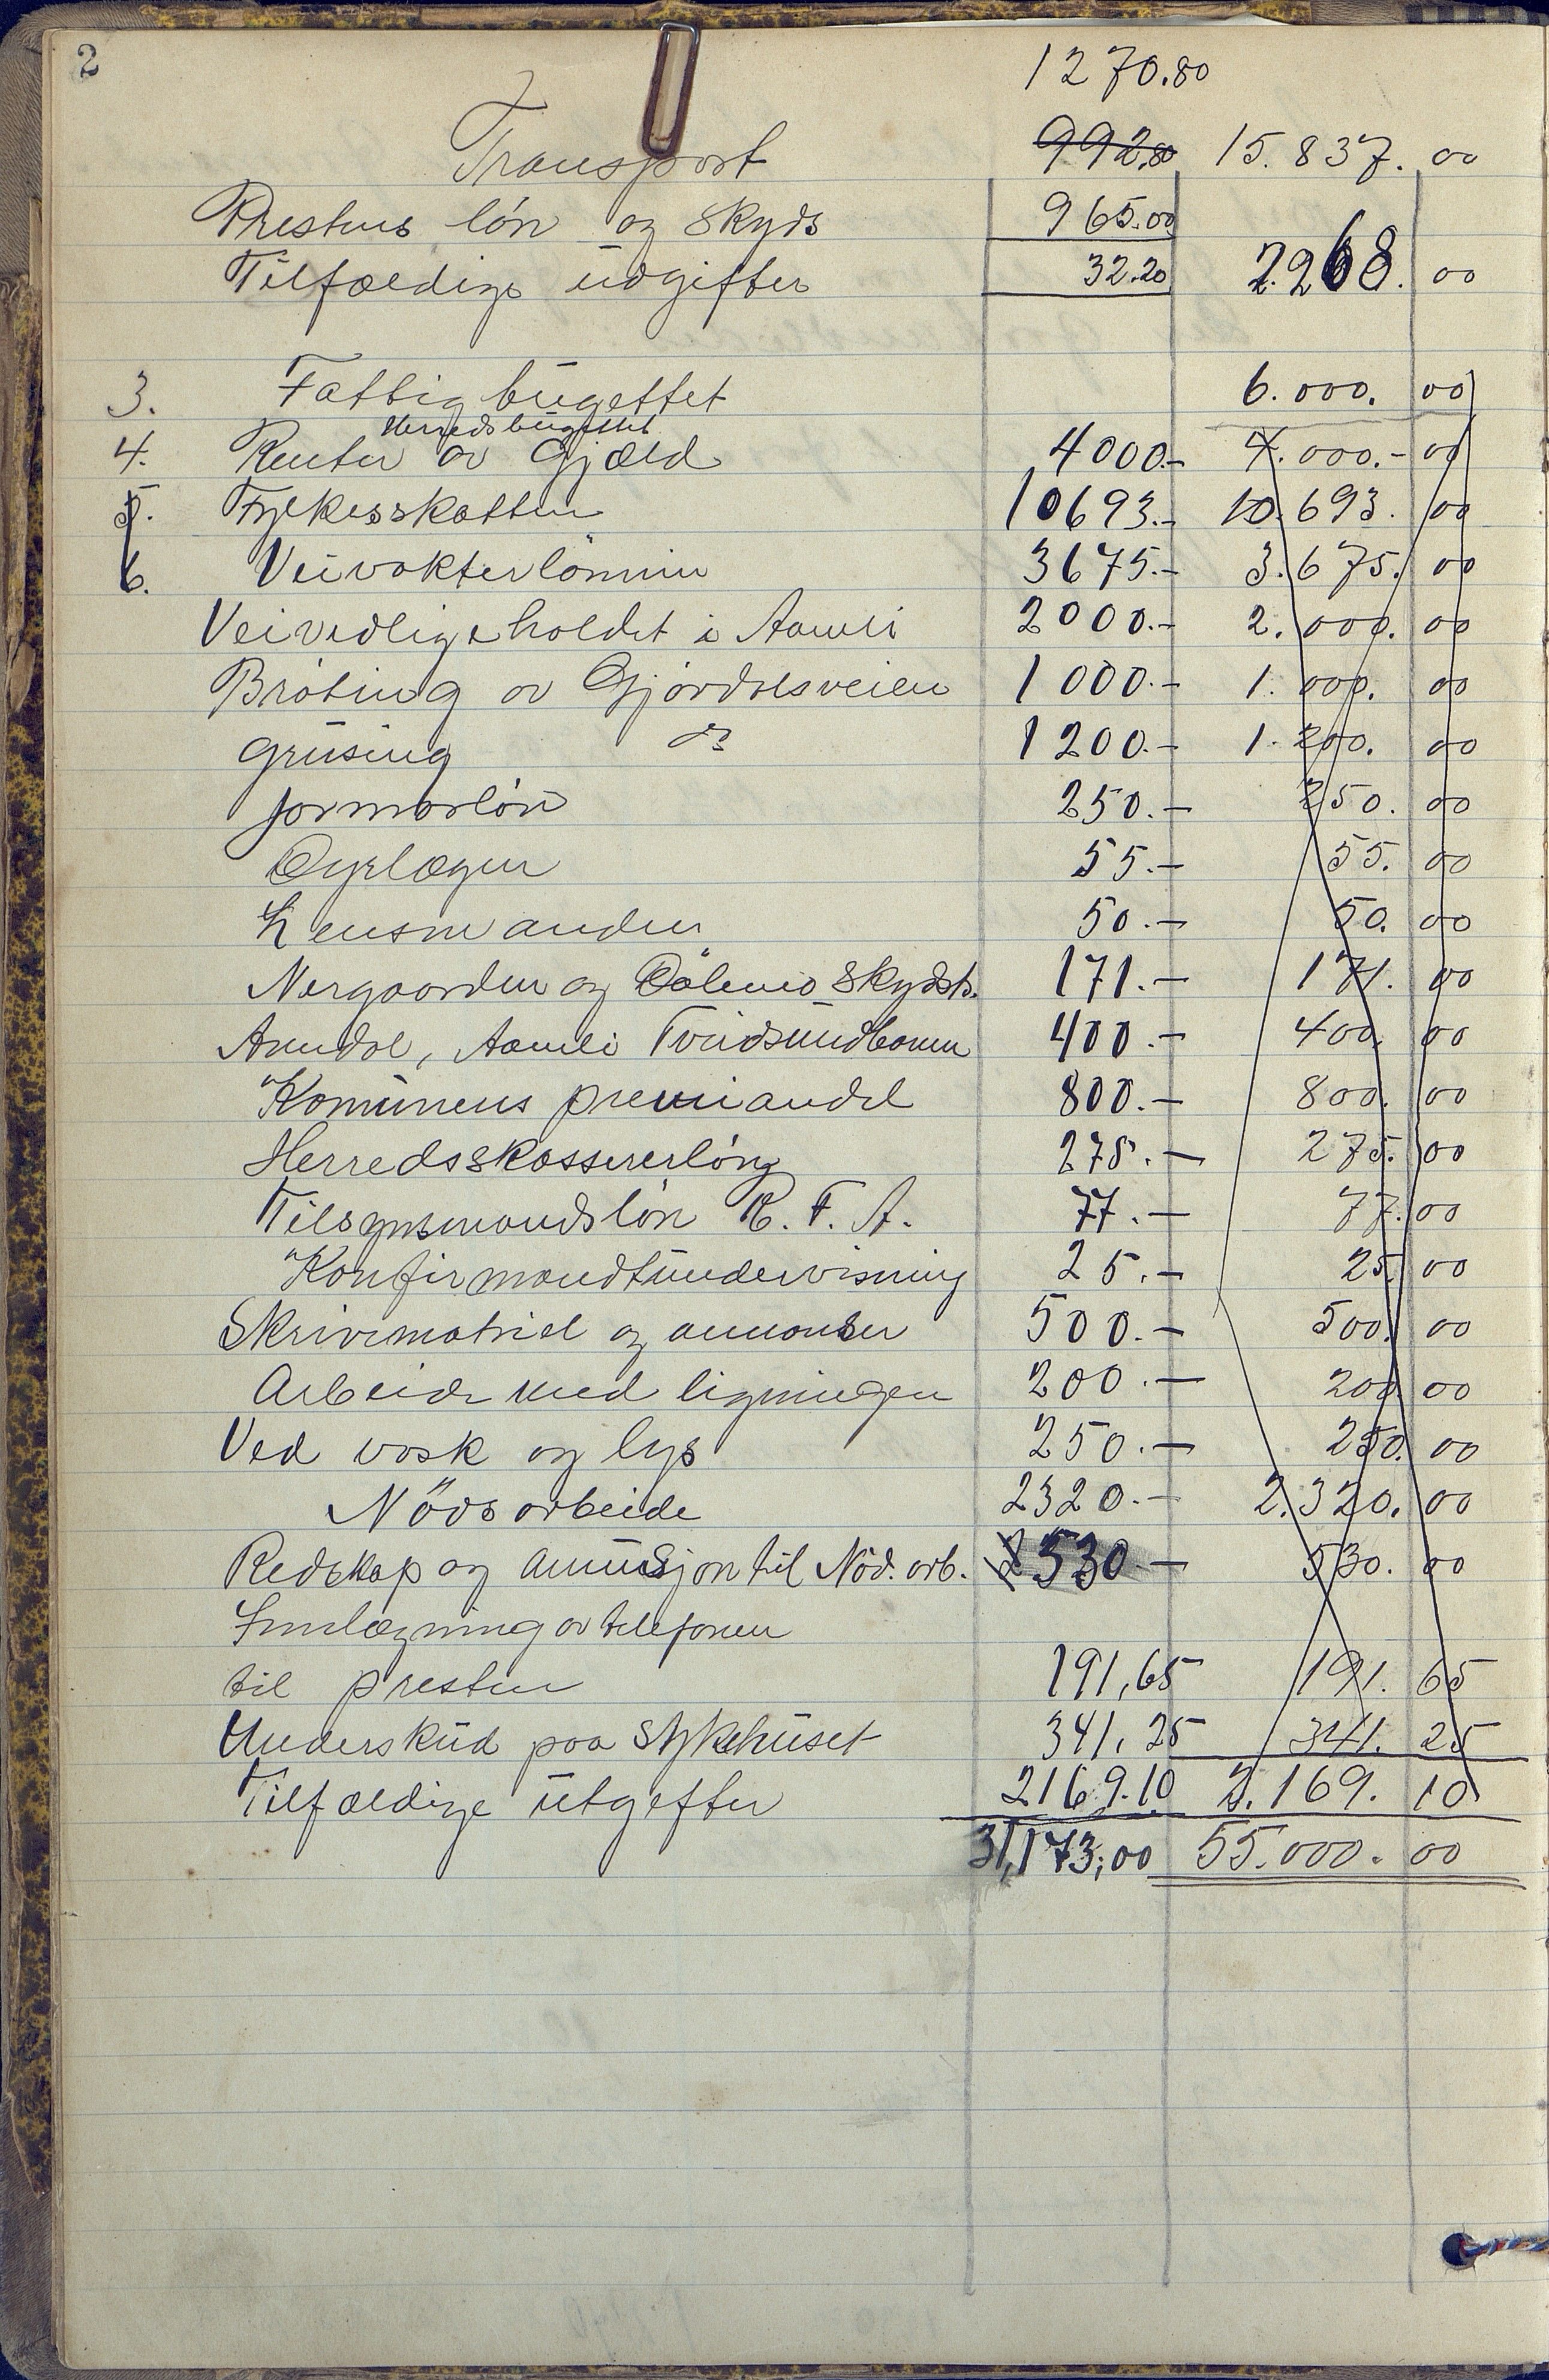 2
1270.80
Transport 992,80 15.837. 00
Prestens løn og skyds 965.00
Tilfældige udgifter 32.20 2.268. 00
3. Fattigbugettet 6.000. 00
Herredsbugettet
4. Renter av Gjæld 4000.- 4.000.- 00
5. Fylkesskatten 10693.- 10.693. 00
6. Veivokterlønnen 3675.- 3.675. 00
Veivedligeholdet i Aamli 2000.- 2.000. 00
Brøting av Gjøvdalsveien 1000.- 1.000. 00
Grusing do 1200.- 1.200. 00
Jormorløn 250.- 250. 00
Dyrlægen 55.- 55. 00
Lensmanden 50.- 50. 00
Nergaarden og Dølemo Skydsts. 171.- 171. 00
Arendal, Aamli Tveidsundbanen 400.- 400. 00
Komunens premiandel 800.- 800. 00
Herredskassererløng 275.- 275. 00
Tilsynsmandsløn R. F. A. 77.- 77. 00
Konfirmandtundervisning 25.- 25 00
Skrivematriel og annonser 500.- 500. 00
Arbeide med ligningen 200.- 200 00
Ved vask og lys 250.- 250. 00
Nødsarbeide 2320.- 2.320. 00
Redskap og amusjon til Nød. arb. 530- 530. 00
Innlægning av telefonen
til presten 191,65 191. 65
Underskud paa Sykehuset 341,25 341. 25
Tilfældige utgefter 2169.10 2.169. 10
31,173,00 55.000. 00